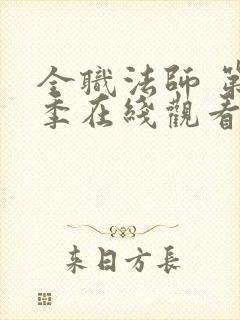 全職法師 第
季在綫觀看
来日方長